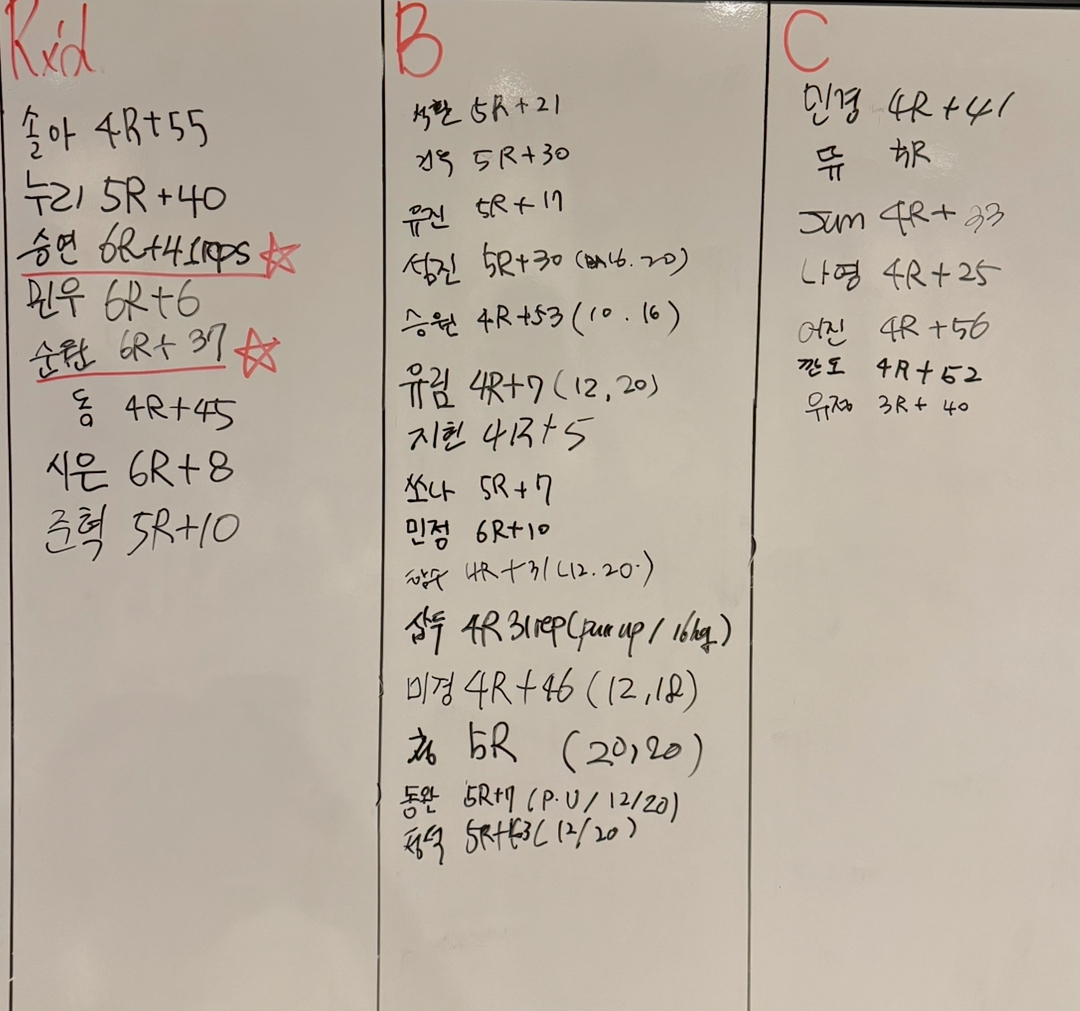 Rx'd
솔아 4R+55
누리 5R+40
승연 6R+41reps
민우 6R+6
순환 6R+37
동 4R+45
시은 6R+8
준혁 5R+10
B
석환 5R+21
5R+30
유진 5R+17
성진 5R+30 (20)
승원 4R+53 (10.16)
유림 4R+7 (12,20)
지현 4R+5
쏘나 5R+7
민정 6R+10
4R+31 (12.20.)
삼두 4R 31rep (pull up / 16kg)
미경 4R+46 (12,18)
5R (20,20)
동완 5R+7 (P.U/12/20)
(12/20)
C
민경 4R+41
쮸 5R
Jum 4R+33
나영 4R+25
어진 4R+56
깐도 4R+52
유정 3R+40